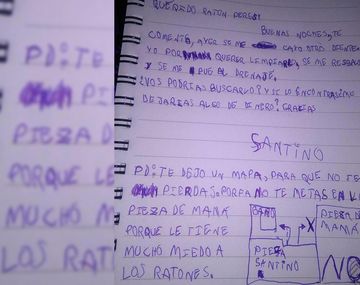 QUERIDO RATON PERES:
BUENAS NOCHES, TE
COMENTO, AYER SE ME CAYO OTRO DIENTE
YO POR QUERER LIMPIARLO, SE ME RESBALO
Y SE ME FUE AL DRENAJE.
¿VOS PODRIAS BUSCARLO? Y SI LO ENCONTRAS ME
DEJARIAS ALGO DE DINERO? GRACIAS
SANTINO
PD: TE DEJO UN MAPA, PARA QUE NO TE
PIERDAS. PORFA NO TE METAS EN L
PIEZA DE MAMÁ
PORQUE LE TIENE
MUCHO MIEDO A
LOS RATONES.
BAÑO
PIEZA D
MAMÁ
X
PIEZA
SANTINO
NO
PD: TE
PI
PIEZA D
PORQUE LE
MUCHO M
LOS RAT